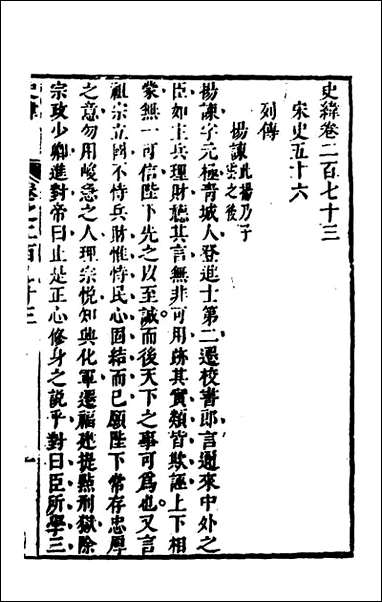 史緯卷二百七十三
宋史五十六
列傳
楊諫此楊乃子雲之後
楊諫字元極青城人登進士第二遷校書郎言邇來中外之
臣如主兵理財聽其言無非可用跡其實類皆欺誣上下相
蒙無一可信陛下先之以至誠而後天下之事可為也又言
祖宗立國不恃兵財惟恃民心固結而已願陛下常存忠厚
之意勿用峻急之人理宗悅知興化軍遷福建提點刑獄除
宗政少卿進對帝曰止是正心修身之說乎對曰臣所學三
卷二百七十三